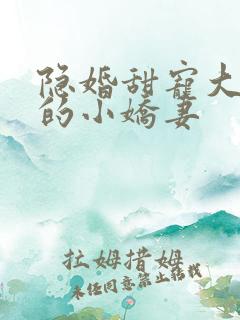 隐婚甜宠大
的小娇妻
拉姆措姆
未经同意禁止转载